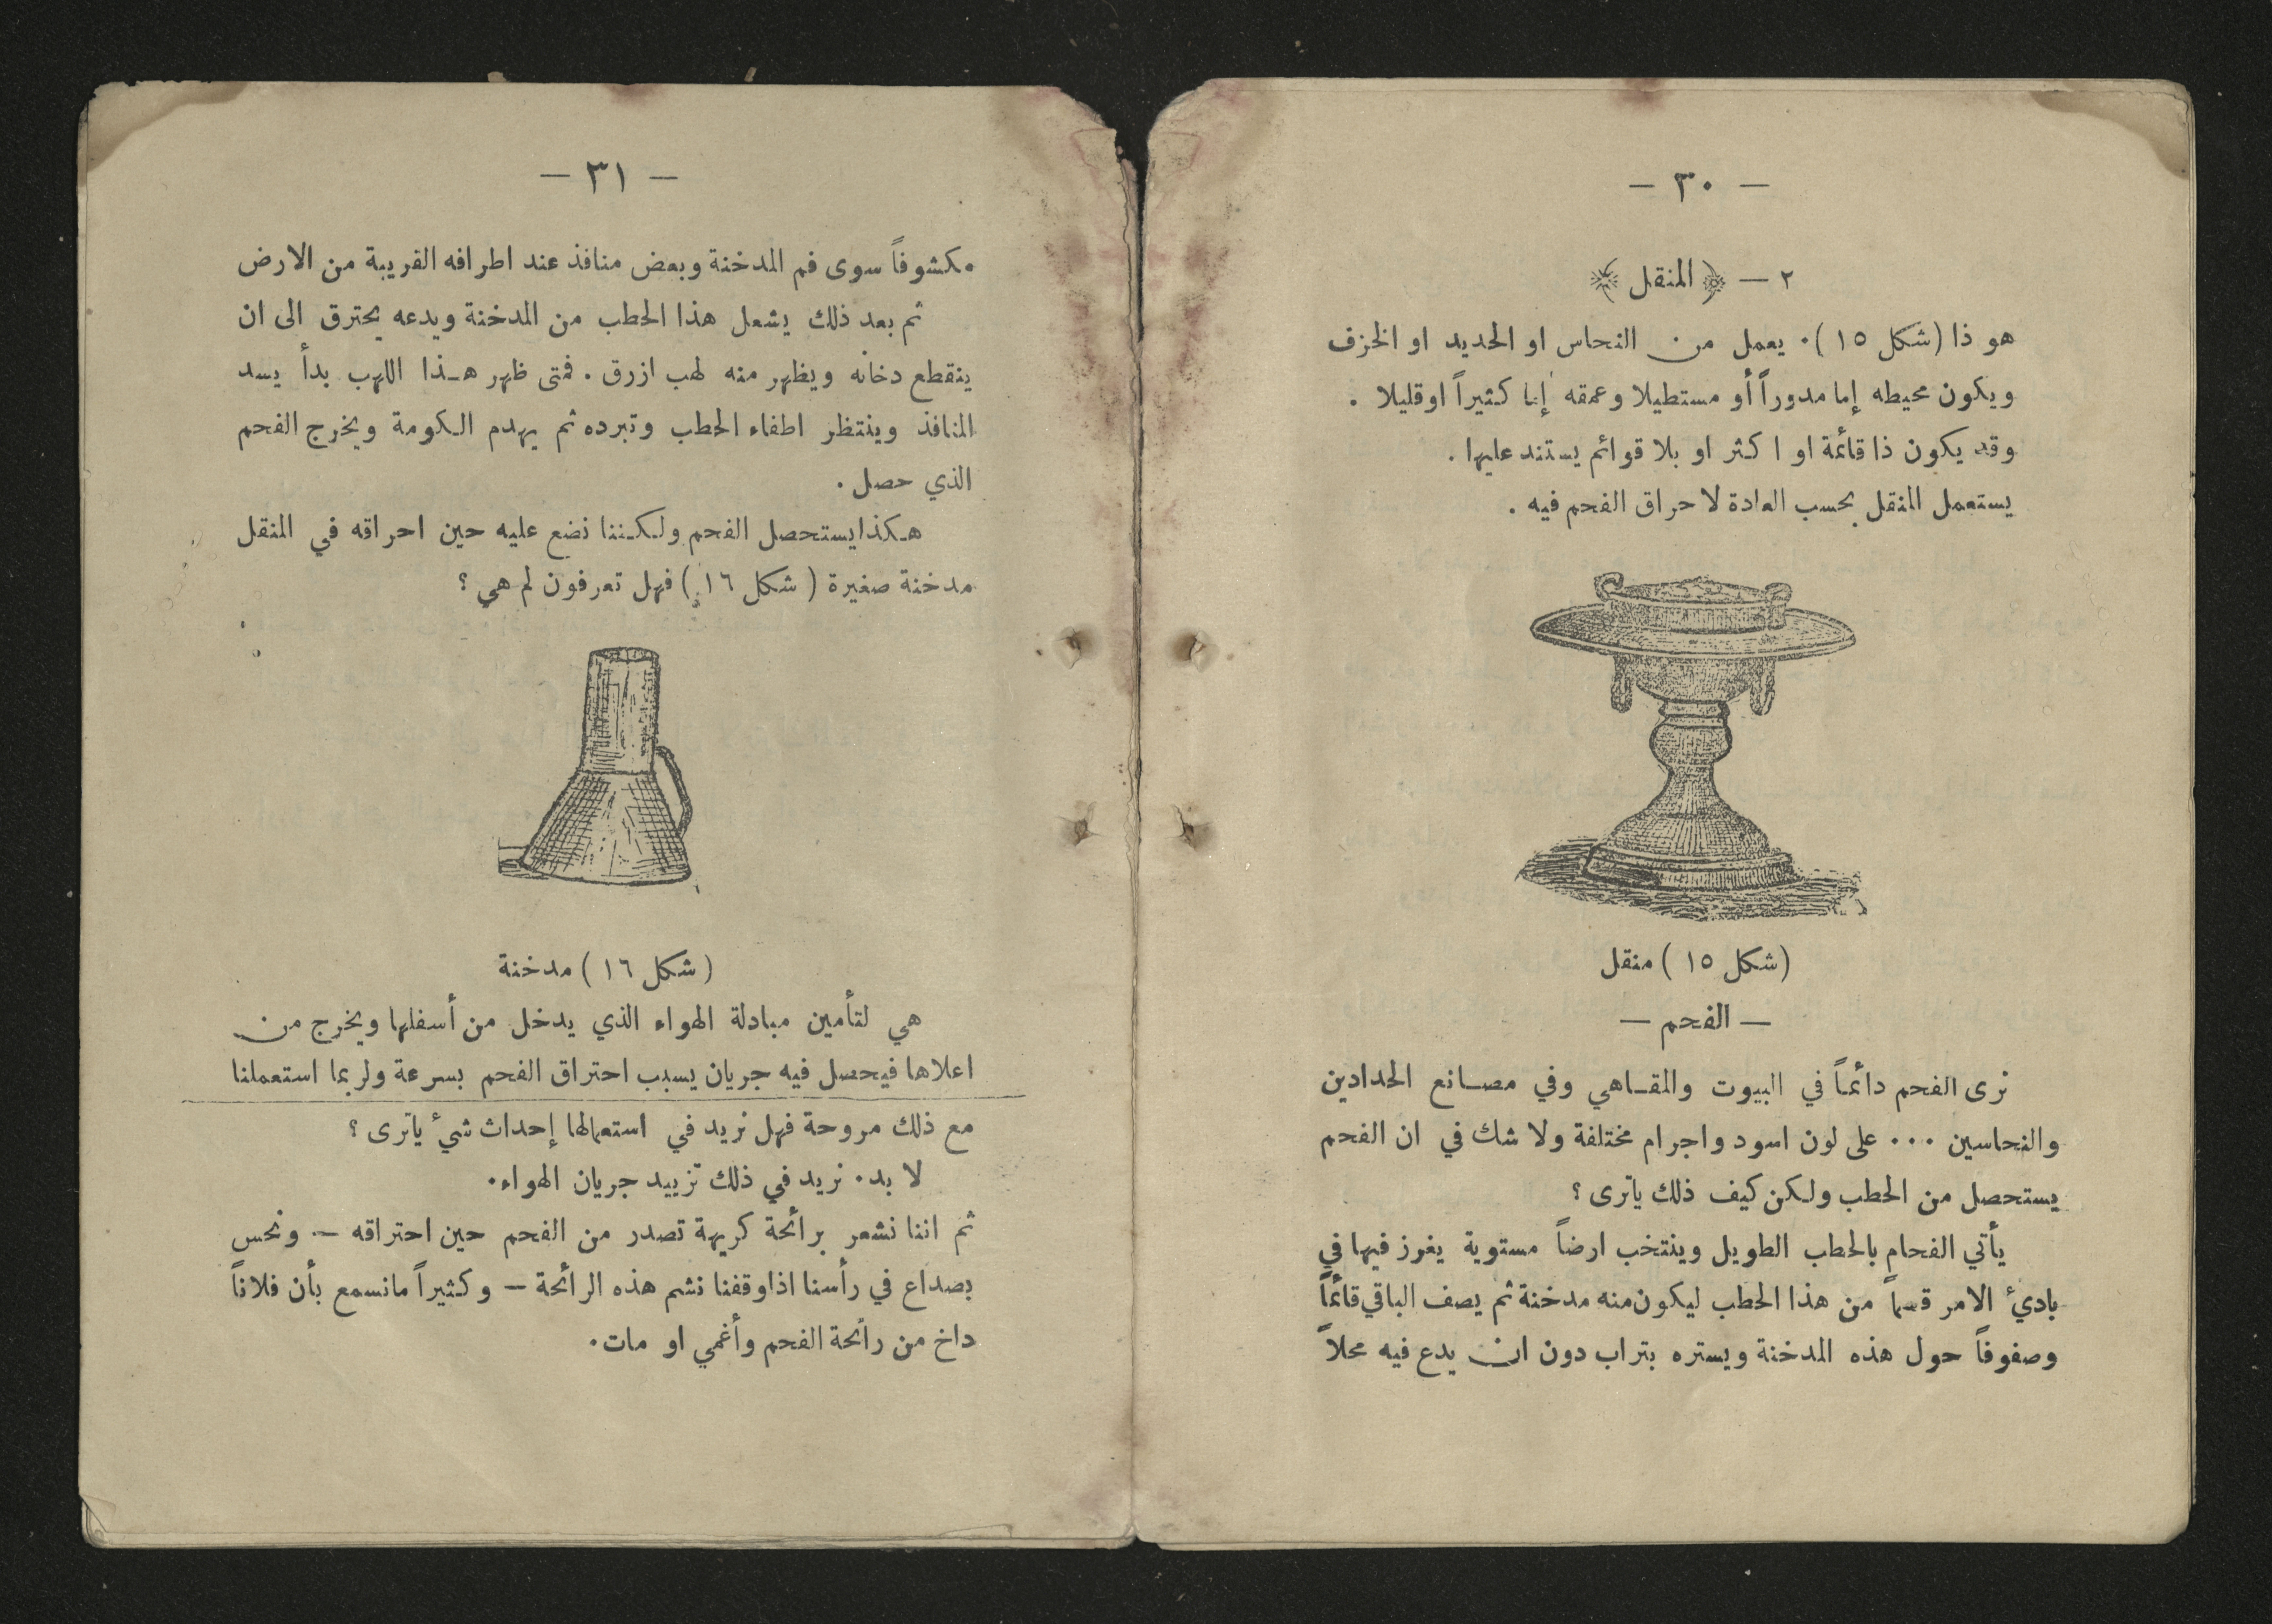 — ٣٠ —
٢ — ﴿ المنقل ﴾
هو ذا (شكل ١٥). يعمل من النحاس او الحديد او الخزف
ويكون محيطه إما مدوراً أو مستطيلا وعمقه إما كثيراً او قليلا .
وقد يكون ذا قائمة او اكثر او بلا قوائم يستند عليها .
يستعمل المنقل بحسب العادة لاحراق الفحم فيه .
(شكل ١٥) منقل
— الفحم —
نرى الفحم دائماً في البيوت والمقاهي وفي مصانع الحدادين
والنحاسين ... على لون اسود واجرام مختلفة ولا شك في ان الفحم
يستحصل من الحطب ولكن كيف ذلك ياترى ؟
يأتي الفحام بالحطب الطويل وينتخب ارضاً مستوية يغرز فيها في
بادئ الامر قسماً من هذا الحطب ليكون منه مدخنة ثم يصف الباقي قائماً
وصفوفاً حول هذه المدخنة ويستره بتراب دون ان يدع فيه محلاً
— ٣١ —
مكشوفاً سوى فم المدخنة وبعض منافذ عند اطرافه القريبة من الارض
ثم بعد ذلك يشعل هذا الحطب من المدخنة ويدعه يحترق الى ان
ينقطع دخانه ويظهر منه لهب ازرق . فمتى ظهر هذا اللهب بدأ يسد
المنافذ وينتظر اطفاء الحطب وتبرده ثم يهدم الكومة ويخرج الفحم
الذي حصل .
هكذا يستحصل الفحم ولكننا نضع عليه حين احراقه في المنقل
مدخنة صغيرة ( شكل ١٦ ) فهل تعرفون لم هي ؟
( شكل ١٦ ) مدخنة
هي لتأمين مبادلة الهواء الذي يدخل من أسفلها ويخرج من
اعلاها فيحصل فيه جريان يسبب احتراق الفحم بسرعة ولربما استعملنا
مع ذلك مروحة فهل نريد في استعمالها إحداث شيء ياترى ؟
لا بد. نريد في ذلك تزييد جريان الهواء.
ثم اننا نشعر برائحة كريهة تصدر من الفحم حين احتراقه — ونحس
بصداع في رأسنا اذا وقفنا نشم هذه الرائحة — وكثيراً مانسمع بأن فلاناً
داخ من رائحة الفحم وأغمي او مات.